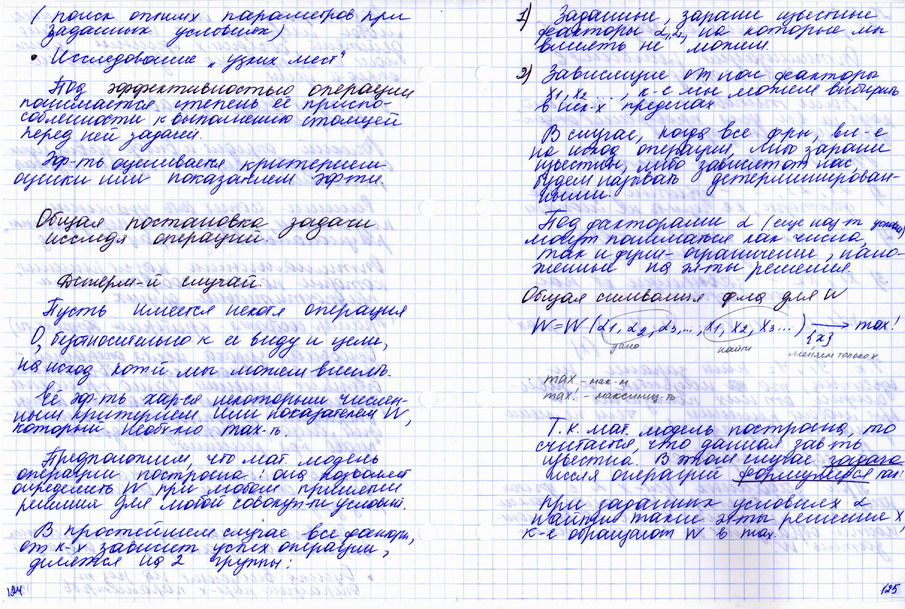 ( поиск оптим-х параметров при
заданных условиях)
• Исследование „узких мест"
Под эффективностью операции
понимается степень её приспо-
собленности к выполнению стоящей
перед ней задачей.
Эф-ть оценивается критерием
оценки или показанием эф-ти.
Общая постановка задачи
исслед-я операций
Детерм-й случай.
Пусть имеется некот-я операция
О, безотносительно к её виду и цели,
на исход кот-й мы можем влиять.
Её эф-ть хар-ся некоторым числен-
ным критерием или показателем W,
который необх-мо max-ть.
Предположим, что мат. модель
операции построена! она позволяет
определить W при любом принятом
решении для любой совокуп-ти условий.
В простейшем случае все факторы,
от к-х зависит успех операции,
делятся на 2 группы:
124
1) Заданные, заранее известные
факторы α1,α2, на которые мы
влиять не можем
2) Зависящие от нас факторы
x1, x2 ..., к-е мы можем выбирать
в изв-х пределах
В случае, когда все ф-ры, вл-е
на исход операции, либо заранее
известны, либо зависят от нас
будем называть детерминирован-
ными.
Под факторами α (еще наз-т услов)
могут пониматься как числа,
так и функ- ограничение, нало-
женные на эл-ты решения.
Общая символич фла для W
W=W (α1, α2, α3,..., x1, x2, x3...) → max!
дано найти {x} меняем только x
max – мак-м
max! – максимиз-ть
Т.к. мат. модель построена, то
считается, что данная зав-ть
известна. В этом случае задача
исслед операций формулируется так:
При заданных условиях α
найти такие эл-ты решения x,
к-е обращают W в max.
125